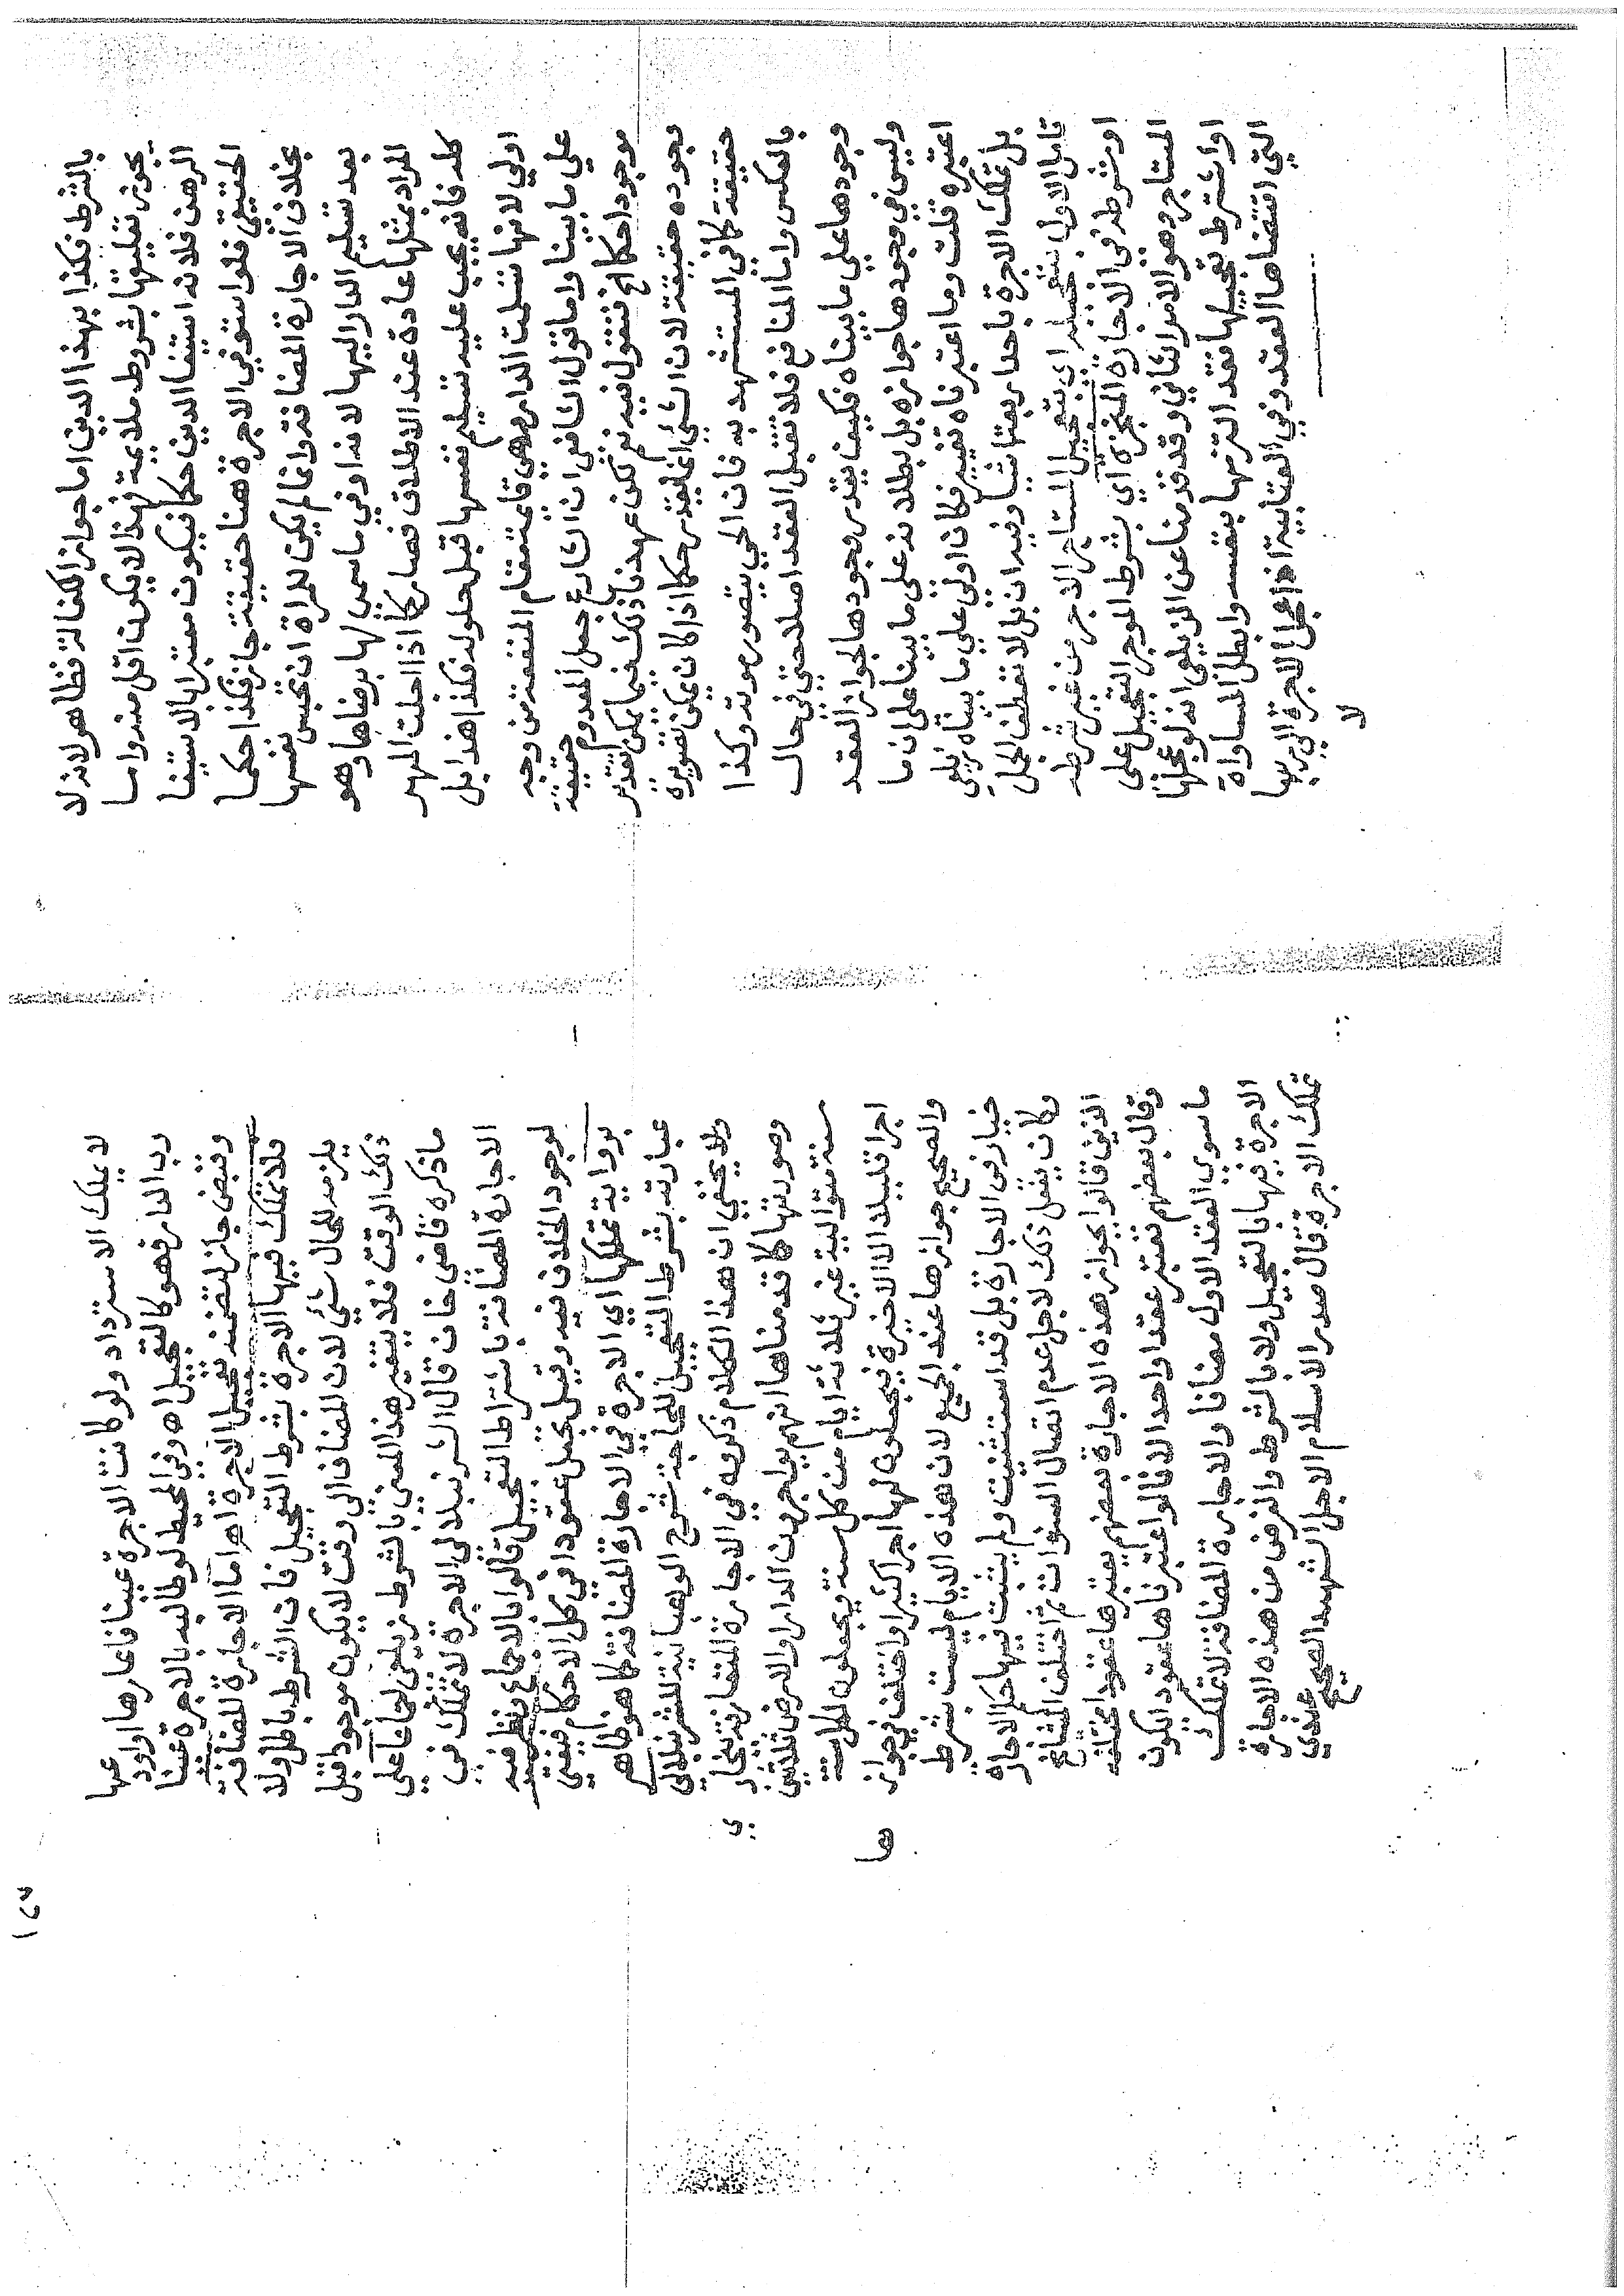 بالشرط فكذا بهذا الدين اما جواز الكفالة فظاهر لانه لا
يجوز تعليقها بشروط ملايمة لهذا لا يكون اقل منه واما
الرهن فلانه استيفا الدين حكما فيكون معتبرا بالاستيفا
الحقيقي فلو استوفي الاجرة هنا حقيقة جاز فكذا حكما
بخلاف الاجارة المضافة وانما لم يكن للمراة ان تحبس نفسها
بعد تسليم الدار اليها لانه اوفي ما سمي لها برضاها وهو
المراد بمثلها عادة عند الاطلاق فصار كما اذا حلت المهر
كله فانه يجب عليه تسليم نفسها قبل حلوله فكذا هذا بل
اولي لانها تسلمت الدار وهي قايمة مقام المنفعة من وجه
علي ما بينا واما قول الشافعي ان الشارع جعل المعدوم حقيقة
موجودا حكما الخ فنقول فيه نعم لكن عهدنا ذلك فيما يمكن تقدير
وجوده حقيقة لان الشي انما يقدر حكما اذا كان يمكن تصويره
حقيقة كما في المستشهد به فان الحي يتصور موته وكذا
بالعكس واما المنافع فلا تقبل العقد اصلا حتي في حال
وجودها علي ما بيناه فكيف يقدر وجودها لجواز العقد
وليس في وجودها جوازه بل بطلانه علي ما بينا علي ان ما
اعتبره قلت وما اعتبرناه تغيير فكان اولي علي ما بيناه زيلعي
بل تملك الاجرة باحد اربعة اشيا وفيه ان بل لا تعطف الجمل
قابل الاول بتعجيله اي بتعجيل المستاجر الاجر من غير شرطه
او شرطه في الاجارة المنجزة اي بشرط الموجر التعجيل علي
المستاجر وهو الامر الثاني وقد قدمنا عن الزيلعي انه لو عجلها
او اشترط تعجيلها فقد التزمها بنفسه وابطل المساواة
التي اقتضاها العقد وفي العتابية اذا عجل الاجرة الي ربها
لا
لا يملك الاسترداد ولو كانت الاجرة عينا فاعارها او اودعها
رب الدار فهو كالتعجيل اه وفي المحيط لو طالبه بالاجرة عينا
وقبض جاز لتضمنه تعجيل الاجرة اه اما الاجارة المضافة
فلا تملك فيها الاجرة بشرط التعجيل فان الشرط باطل ولا
يلزمه للحال شي لان المضاف الي وقت لا يكون موجودا قبل
ذلك الوقت فلا يتغير هذا المعني بالشرط زيلعي لحافا علي
ما ذكره قاضي خان قال الشرنبلالي الاجرة لا تملك في
الاجارة المضافة باشتراط التعجيل قالوا بالاجماع ونظر فيه
لوجود الخلاف فيه وقيل يجعل عقودا في كل الاحكام فيفتي
بروايت تملكها اي الاجرة في الاجارة المضافة كما هو ظاهر
عبارته بشرط التعجيل للحاجة شرح الوهبانية للشرنبلالي
ولا يخفي ان هذا الكلام ذكروه في الاجارة المتعارفة بخار
ى
وصورتها كما قدمناها انهم يواجرون الدار او الارض ثلاثين
سنة متوالية غير ثلاثة ايام من كل سنة ويجعلون لكل سنة
اجرا قليلا الا الاخيرة فيجعلون لها اجرا كثيرا واختلف في جواز
ها
والصحيح جوازها عند الجميع لان هذه الايام ليست بشرط
خيار في الاجارة بل قد استثنيت ولم يثبت فيها حكم الاجارة
وكان يفعل ذلك لاجل عدم اتصال السنوات ثم اختلف المشايخ
الذين قالوا بجواز هذه الاجارة بعضهم يعتبرها عقودا مختلفة
وقال بعضهم تعتبر عقدا واحدا لانا لو اعتبرناها عقودا يكون
ما سوي العقد الاول مضافا والاجارة المضافة لا تملك
الاجرة فيها بالتعجيل ولا بالشرط والغرض من هذه الاجارة
تملك الاجرة قال صدر الاسلام الاجل الشهيد الصحيح عندي
١٤٣